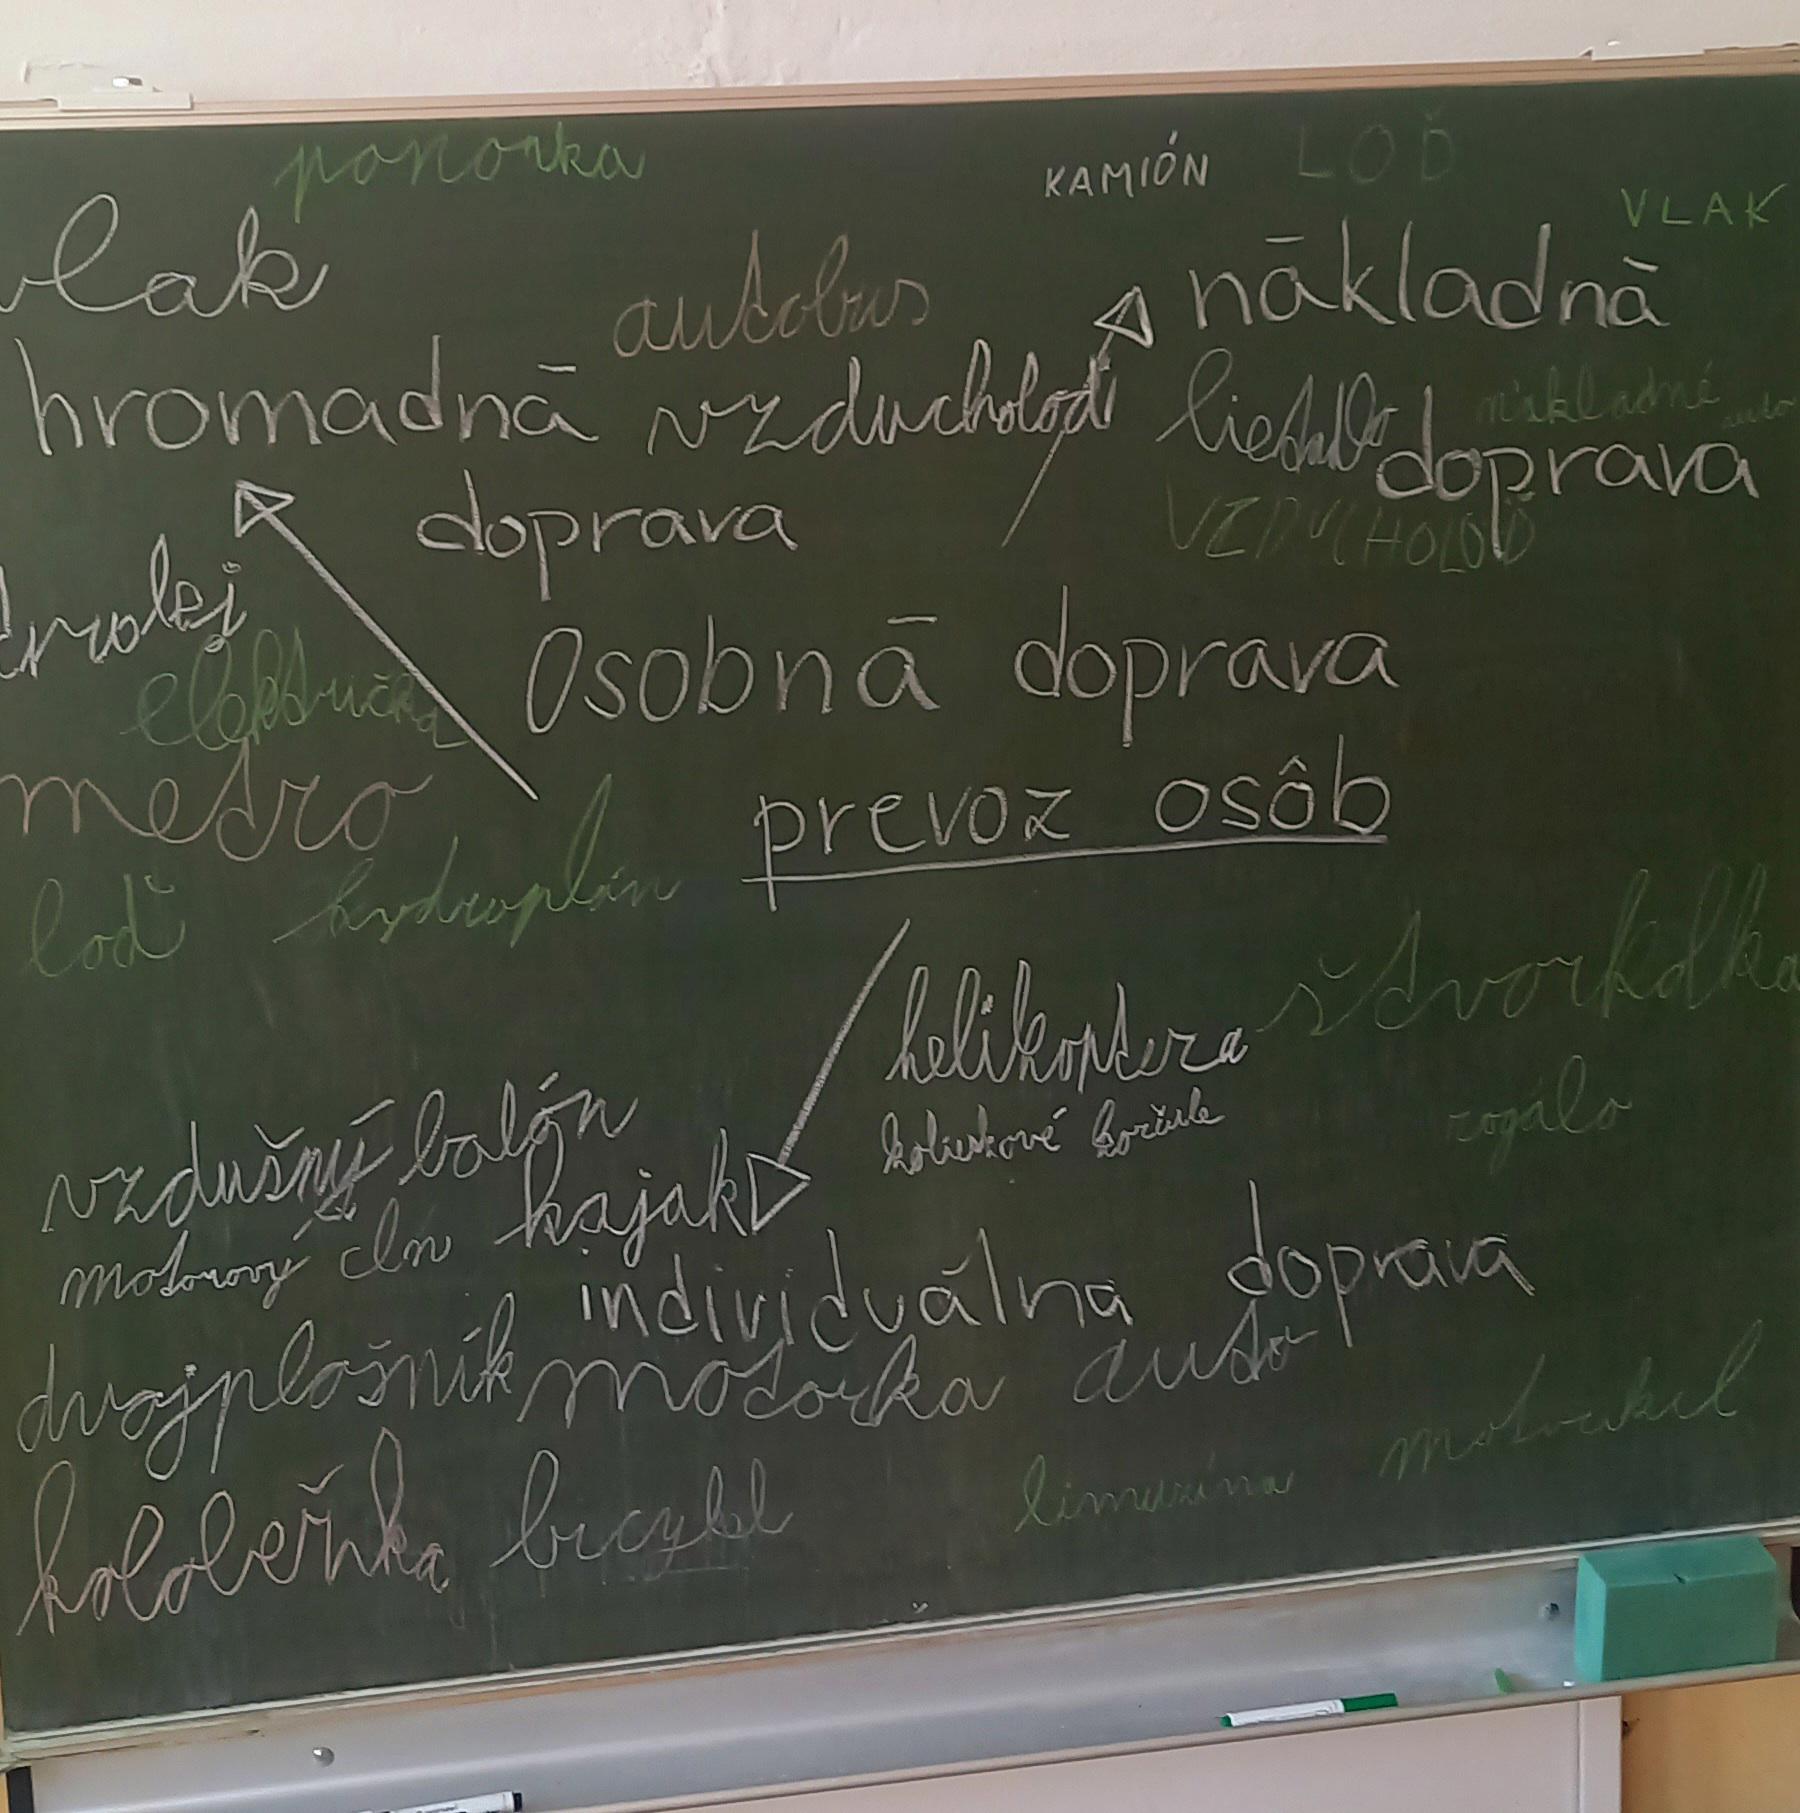 ponorka
KAMIÓN LOĎ
VLAK
vlak
autobus
nákladná
hromadná vzducholoď lietadlo nákladné auto
doprava
doprava
VZDUCHOLOĎ
trolej
Osobná doprava
električka
metro
prevoz osôb
loď hydroplán
štvorkolka
helikoptera
rogálo
kolieskové korčule
vzdušný balón
kajak
motorový čln
individuálna doprava
dvojplošník motorka auto
motorkel
kolobeňka bicykel
limuzína